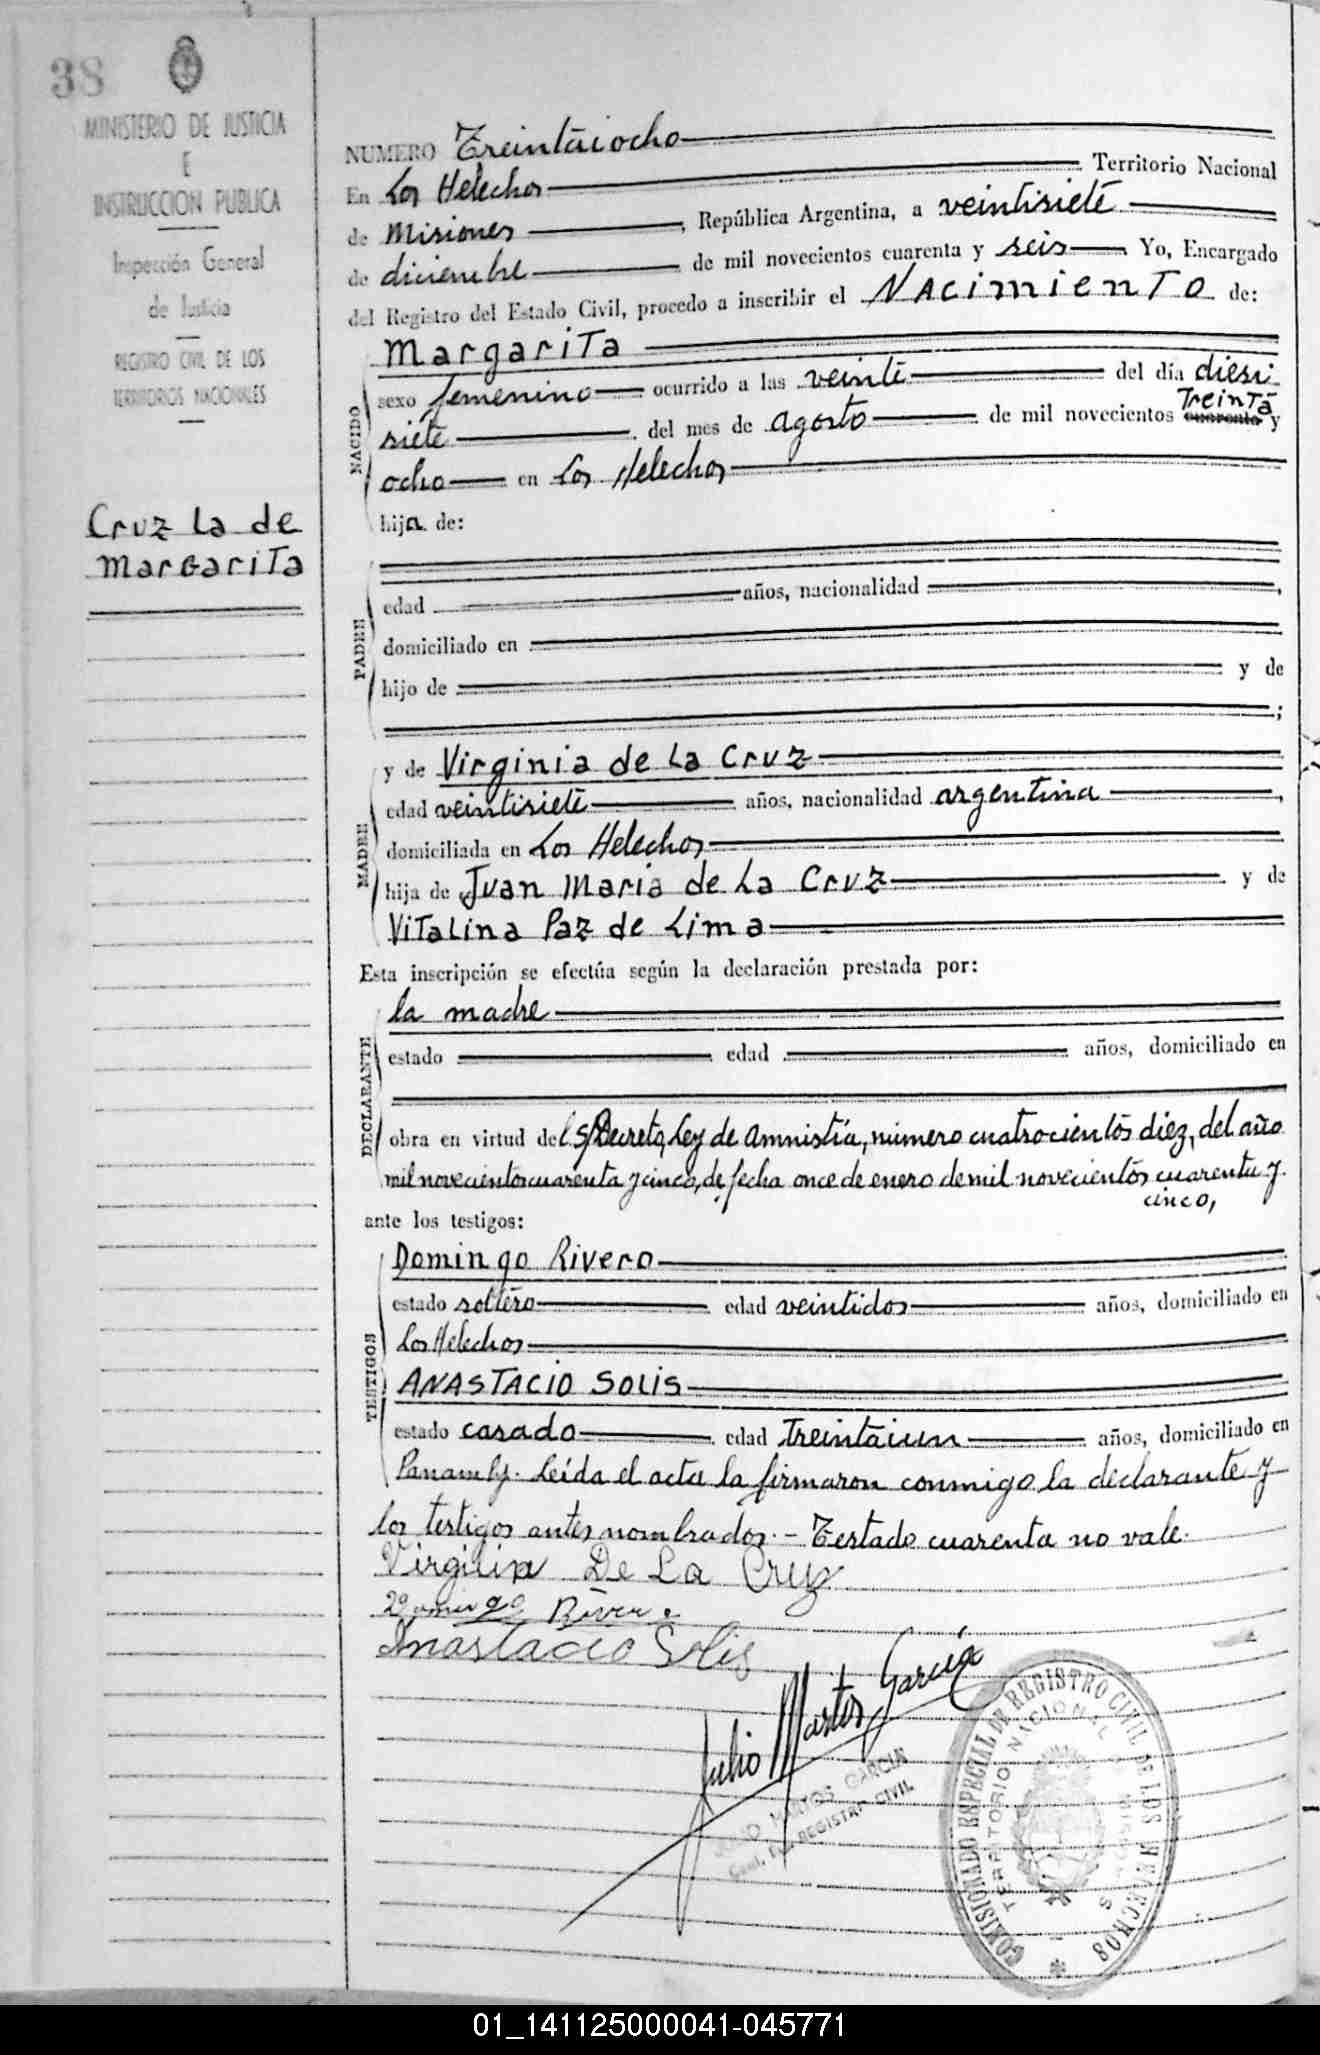 38
MINISTERIO DE JUSTICIA
E
INSTRUCCION PUBLICA
Inspección General
de Justicia
REGISTRO CIVIL DE LOS
TERRITORIOS NACIONALES
Cruz La de
Margarita
NUMERO Treintaiocho
En Los Helechos Territorio Nacional
de Misiones, República Argentina, a veintisiete
de diciembre de mil novecientos cuarenta y seis Yo, Encargado
del Registro del Estado Civil, procedo a inscribir el Nacimiento de:
NACIDO
Margarita
sexo femenino ocurrido a las veinte del día diesi
siete del mes de agosto de mil novecientos cuarenta Treinta y
ocho en Los Helechos
hija de:
PADRE
edad años, nacionalidad
domiciliado en
hijo de y de
;
MADRE
y de Virginia de La Cruz
edad veintisiete años, nacionalidad argentina,
domiciliada en Los Helechos
hija de Juan Maria de La Cruz y de
Vitalina Paz de Lima
Esta inscripción se efectúa según la declaración prestada por:
DECLARANTE
la madre
estado edad años, domiciliado en
obra en virtud del S/Decreto, Ley de Amnistía, número cuatrocientos diez, del año
mil novecientos cuarenta y cinco, de fecha once de enero de mil novecientos cuarenta y
cinco,
ante los testigos:
TESTIGOS
Domingo Rivero
estado soltero edad veintidos años, domiciliado en
Los Helechos
ANASTACIO SOLIS
estado casado edad Treintaiun años, domiciliado en
Panamby. Leída el acta la firmaron conmigo la declarante y
los testigos antes nombrados.- Testado cuarenta no vale.
Virginia De La Cruz
Domingo Rivero
Anastacio Solis
Julio Martos García
JULIO MARTOS GARCIA
REGISTRO CIVIL
COMISIONADO ESPECIAL DE REGISTRO CIVIL DE LOS HELECHOS
TERRITORIO NACIONAL DE MISIONES
01_141125000041-045771